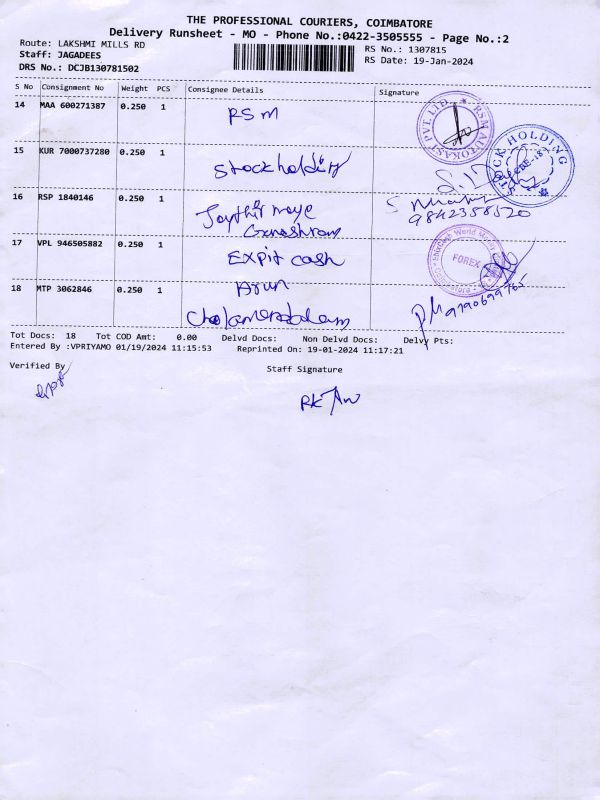 THE PROFESSIONAL COURIERS, COIMBATORE
Delivery Runsheet - MO - Phone No.:0422-3505555 - Page No.:2
Route: LAKSHMI MILLS RD
RS No.: 1307815
Staff: JAGADEES
RS Date: 19-Jan-2024
DRS No.: DCJB130781502
S No Consignment No Weight PCS Consignee Details Signature
14 MAA 600271387 0.250 1 RSM
RSM AUTOKAST PVT. LTD.
15 KUR 7000737280 0.250 1 Stockholding
HOLDING
16 RSP 1840146 0.250 1
9842358520
17 VPL 946505882 0.250 1 cash
World Money
FOREX
18 MTP 3062846 0.250 1 Arun
9790699765
Tot Docs: 18 Tot COD Amt: 0.00 Delvd Docs: Non Delvd Docs: Delvy Pts:
Entered By :VPRIYAMO 01/19/2024 11:15:53 Reprinted On: 19-01-2024 11:17:21
Verified By
Staff Signature